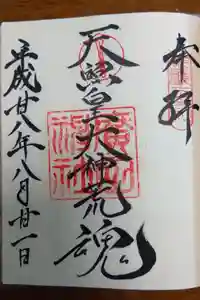 奉拝
天照皇大神荒魂
廣田
神社
平成廿八年八月廿一日